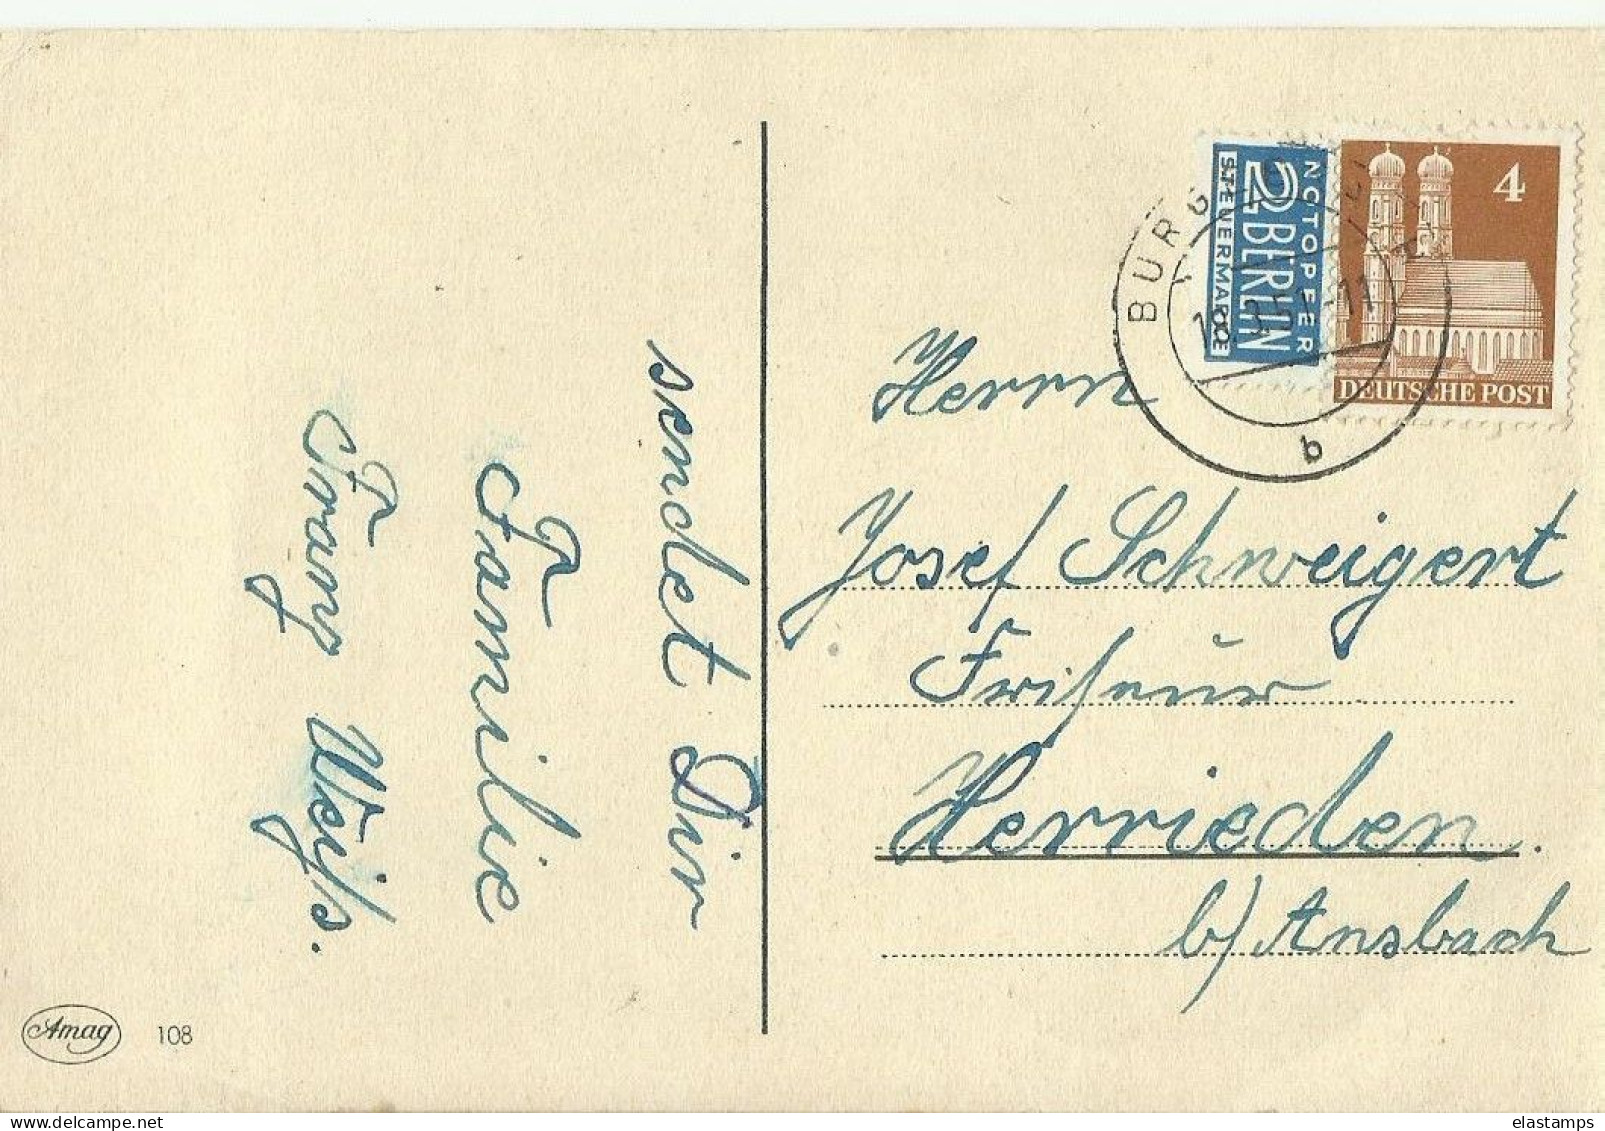 sendet Dir
Familie
Franz Weiß.
Amag 108
NOTOPFER
2 BERLIN
STEUERMARKE
4
DEUTSCHE POST
b
Herrn
Josef Schweigert
Friseur
Herrieden.
b/Ansbach
elastamps